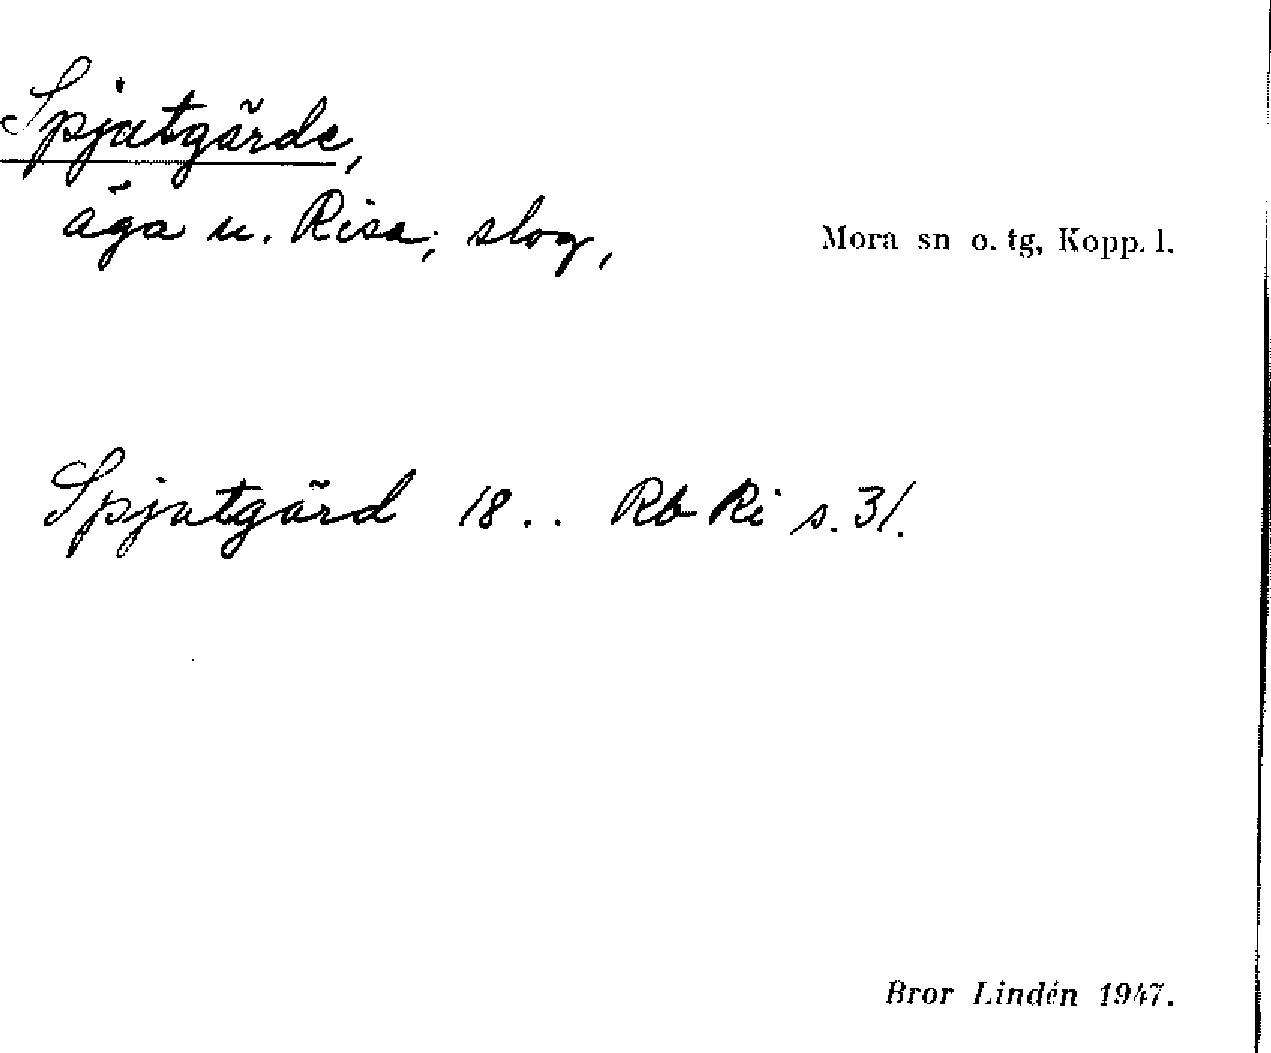 Spjutgärde,
äga u. Risa; slog, Mora sn o. tg, Kopp. l.
Spjutgärd 18.. Rb Ri s. 31.
Bror Lindén 1947.